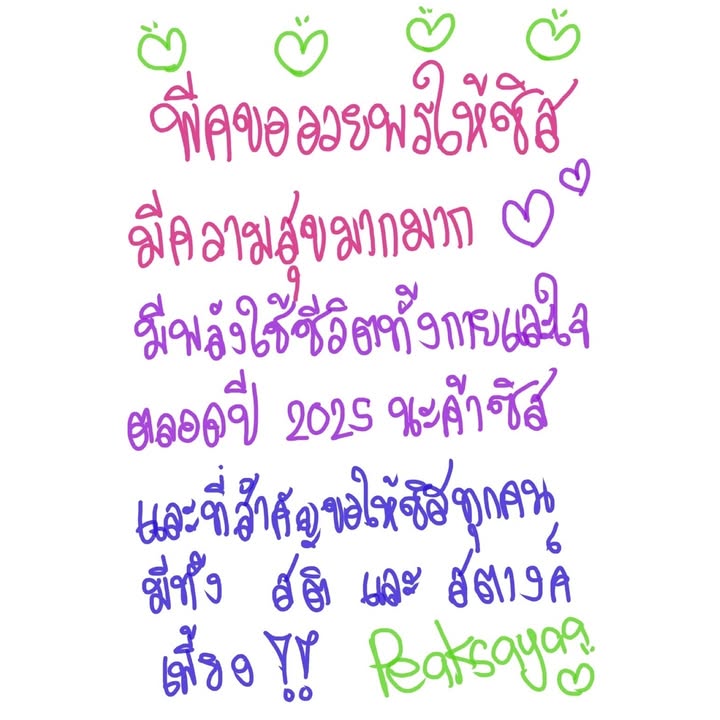 พีคขออวยพรให้ซิส
มีความสุขมากมาก
มีพลังใช้ชีวิตทั้งกายและใจ
ตลอดปี 2025 นะค้าซิส
และที่สำคัญขอให้ซิสทุกคน
มีทั้ง สติ และ สตางค์
เพี้ยง !! Peaksayaaa